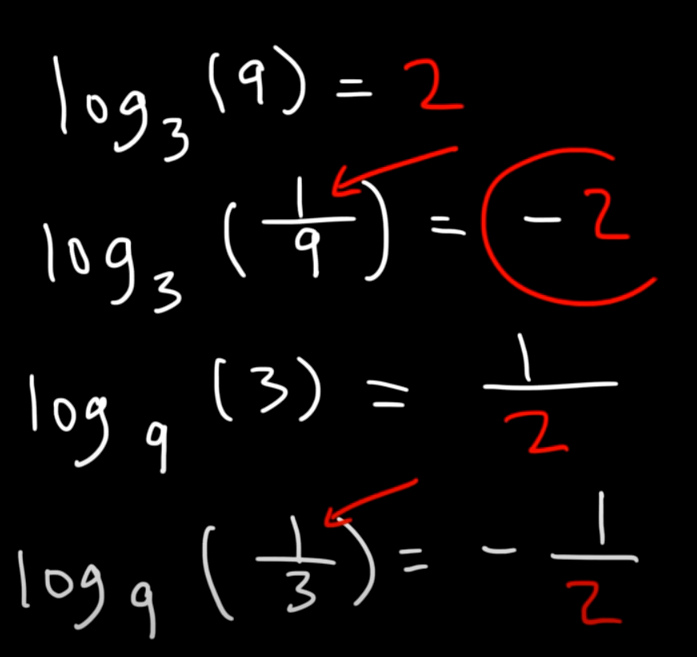 log₃(9) = 2
log₃(1/9) = -2
log₉(3) = 1/2
log₉(1/3) = -1/2